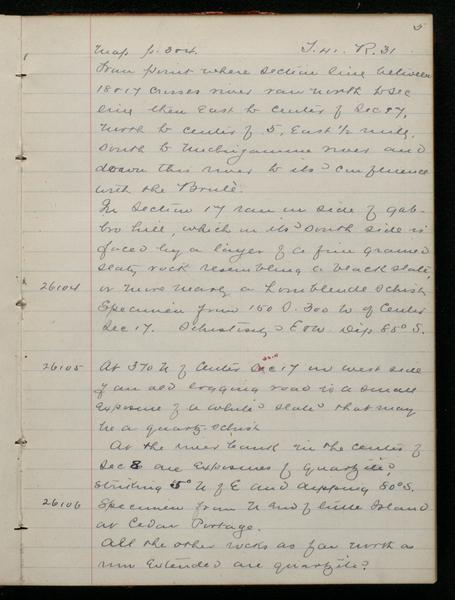 5
Map p. 304. T. 41. R. 31
From point where section line between
18 & 17 crosses river ran north to Sec
line then East to center of Sec
north to center of 5, East 1/2 mile,
South to Michigamme river and
down this river to its confluence
with the Brulé.
In Section 17 ran in side of gab-
bro hill, which in its South side is
faced by a layer of a fine grained
slaty rock resembling a black slate,
26104 or more nearly a hornblende schist
Specimen from 150 300 W of Center
Sec 17. Schistosity E & W. Dip 85° S.
26105 At 370 N of Center Sec 17 on west side
of an old logging road is a small
exposure of a white slate that may
be a quartz schist
At the river bank in the center of
Sec 8 are exposures of quartzite,
striking 5° N of E and dipping 80° S.
26106 Specimen from N end of little Island
at Cedar Portage.
All the other rocks as far north as
run extended are quartzite.